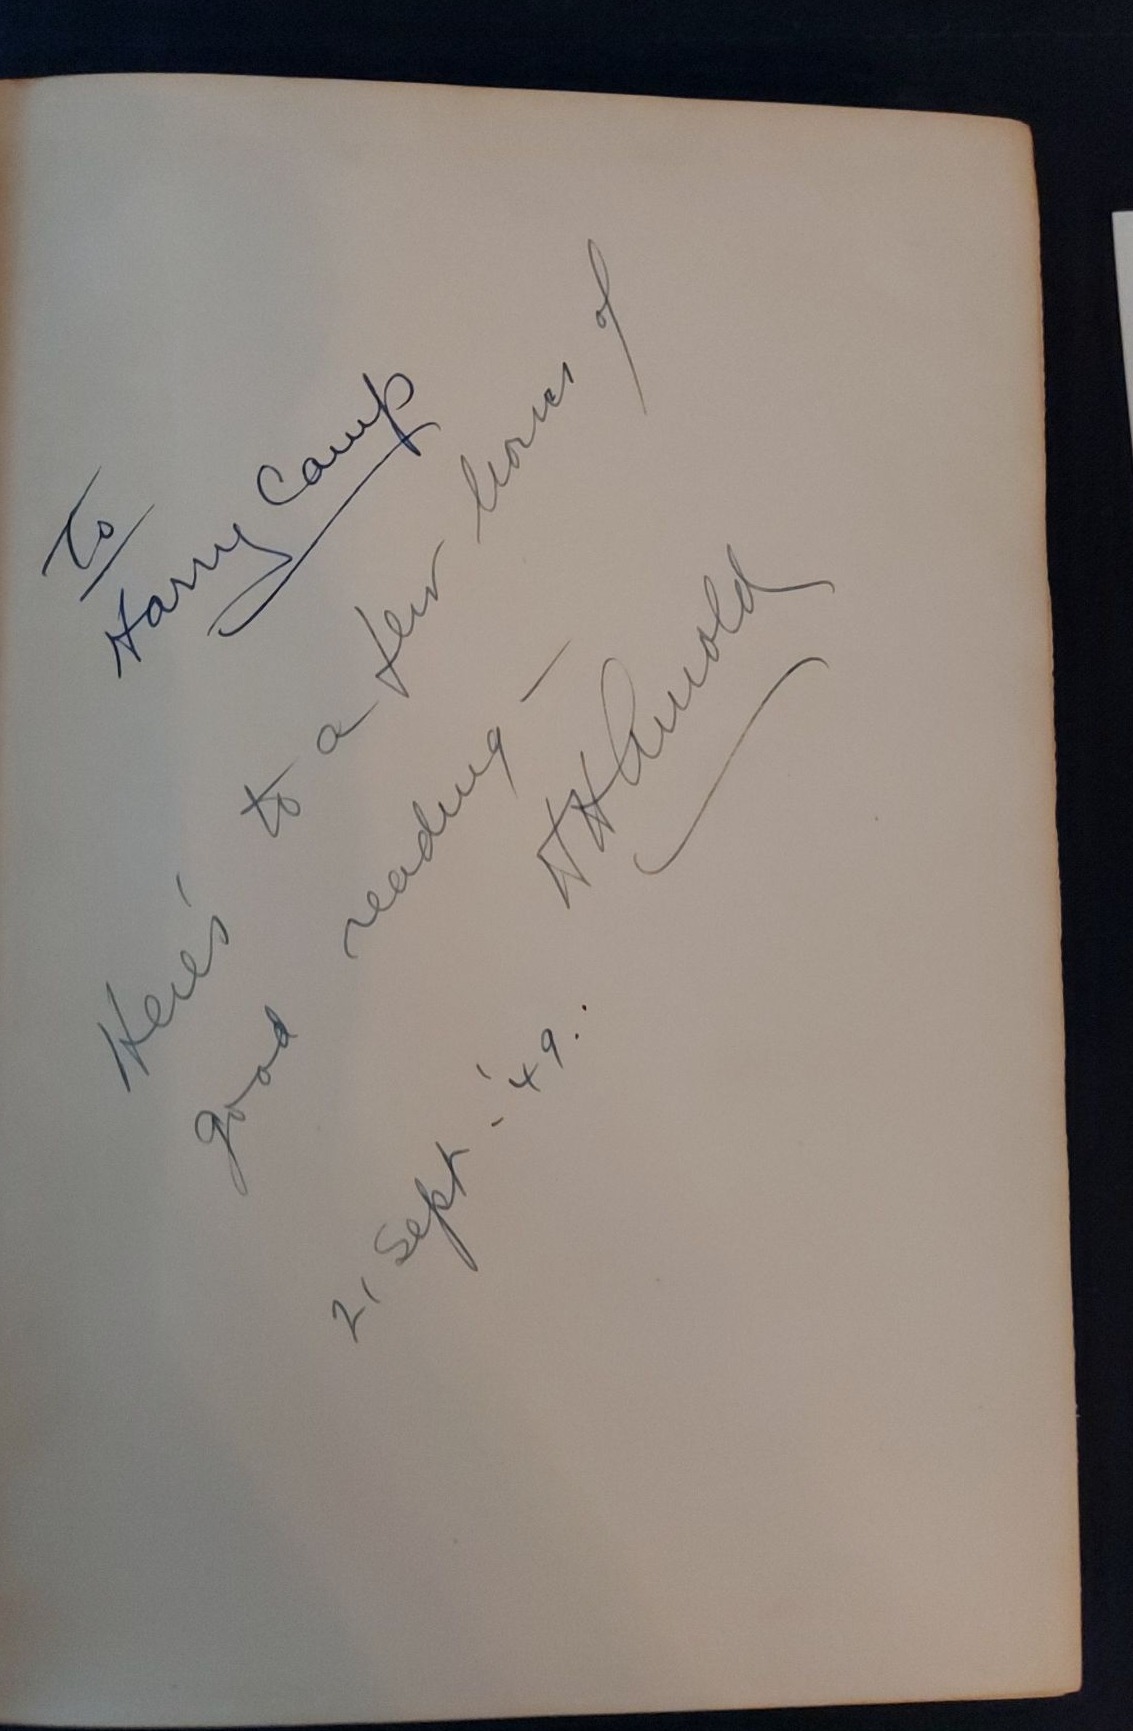 To
Harry Camp
Here's to a few hours of
good reading —
HHArnold
21 Sept - '49.